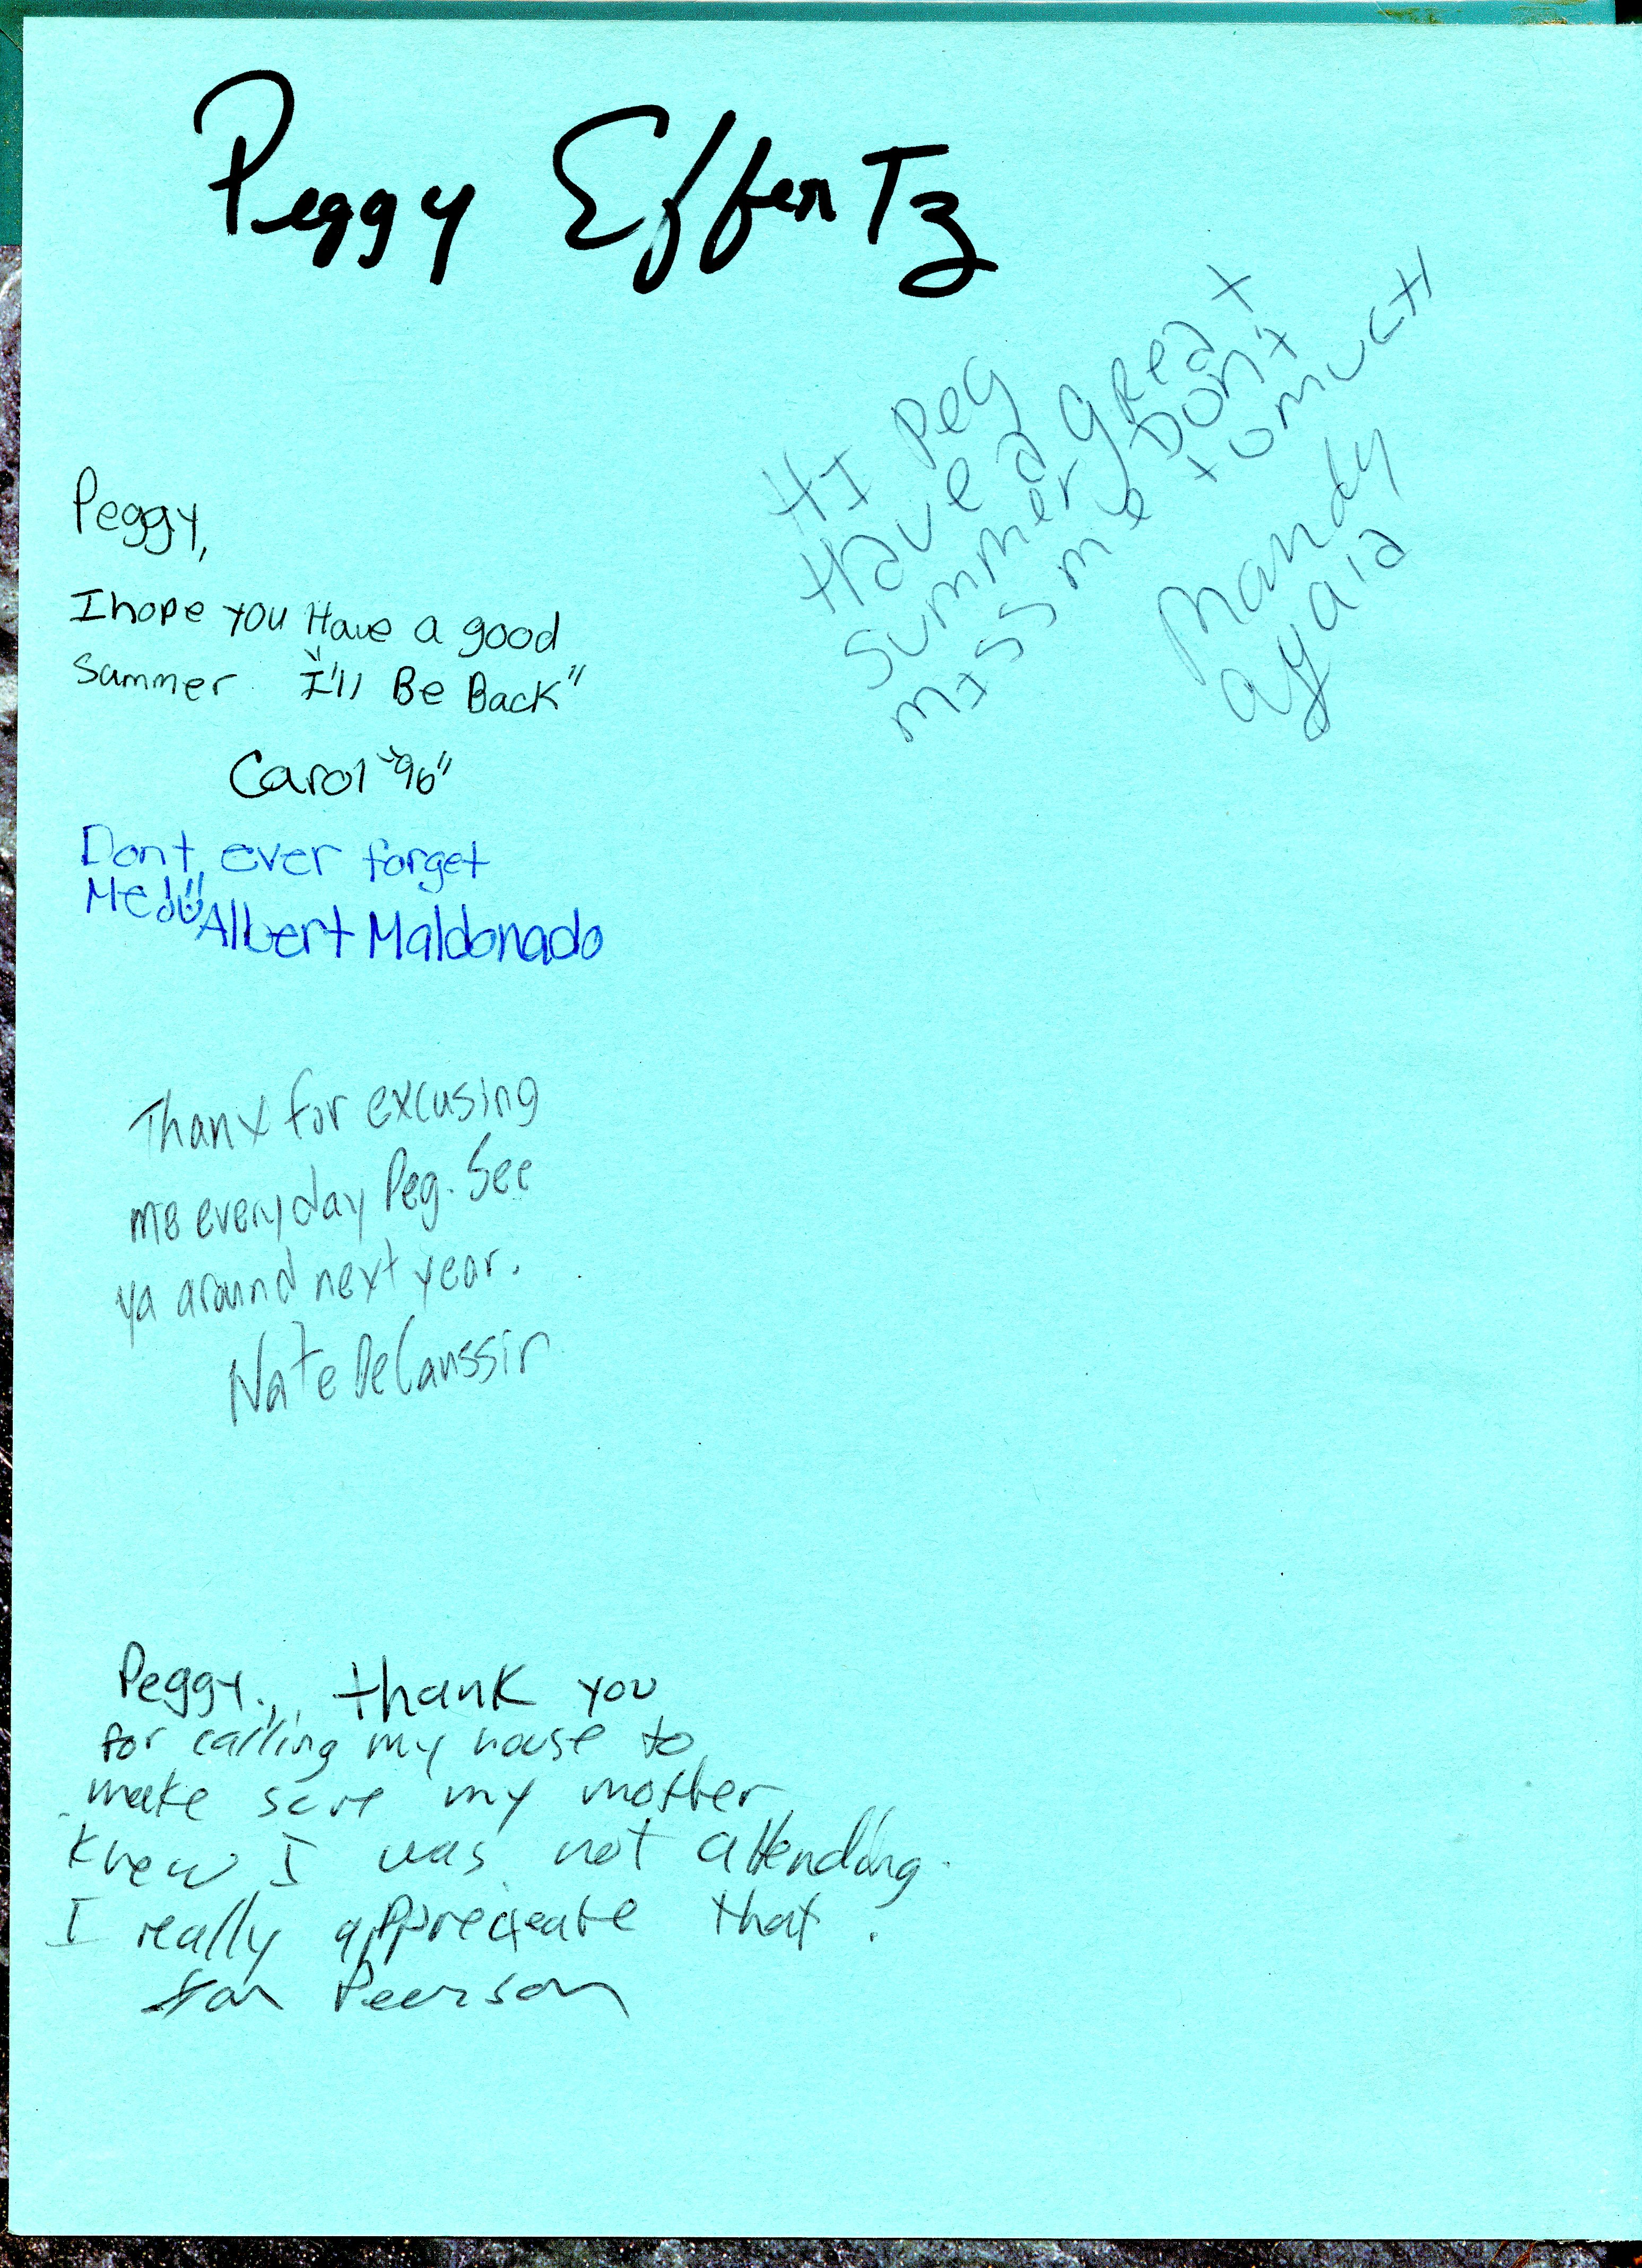 Peggy Effentz
HI Peg
Have a great
summer Don't
miss me tomuch
Mandy
ayala
Peggy,
I hope you Have a good
Summer. "I'll Be Back"
Carol "96"
Dont ever forget
Me!!
Albert Maldonado
Thanx for excusing
me everyday Peg. See
ya around next year.
Nate
Peggy, thank you
for calling my house to
make sure my mother
knew I was not attending.
I really appreceate that.
Peerson